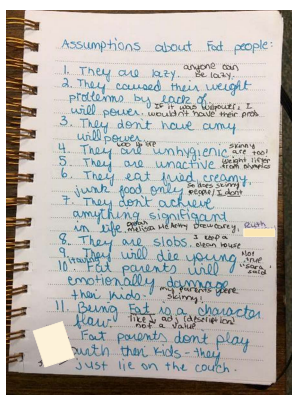 Assumptions about Fat people:
1. They are lazy. anyone can be lazy.
2. They caused their weight
problems by lack of
will power. If it was willpower, I wouldn't have their prob
3. They don't have any
will power
4. They are unhygenic skinny are too!
5. They are unactive weight lifter from olympics
6. They eat fried, creamy,
junk food only so does skinny people, I don't
7. They don't achieve
anything signifigant
in life. Oprah Melissa McCarthy Drew carey, Ruth
8. They are slobs. I keep a clean house
9. They will die young Not true
10. Fat parents will "sara" said
emotionally damage
their kids. my parents were skinny!
11. Being Fat is a character
flaw! like ↓ adj (description) not a value
Fat parents don't play
with their kids - they
just lie on the couch.